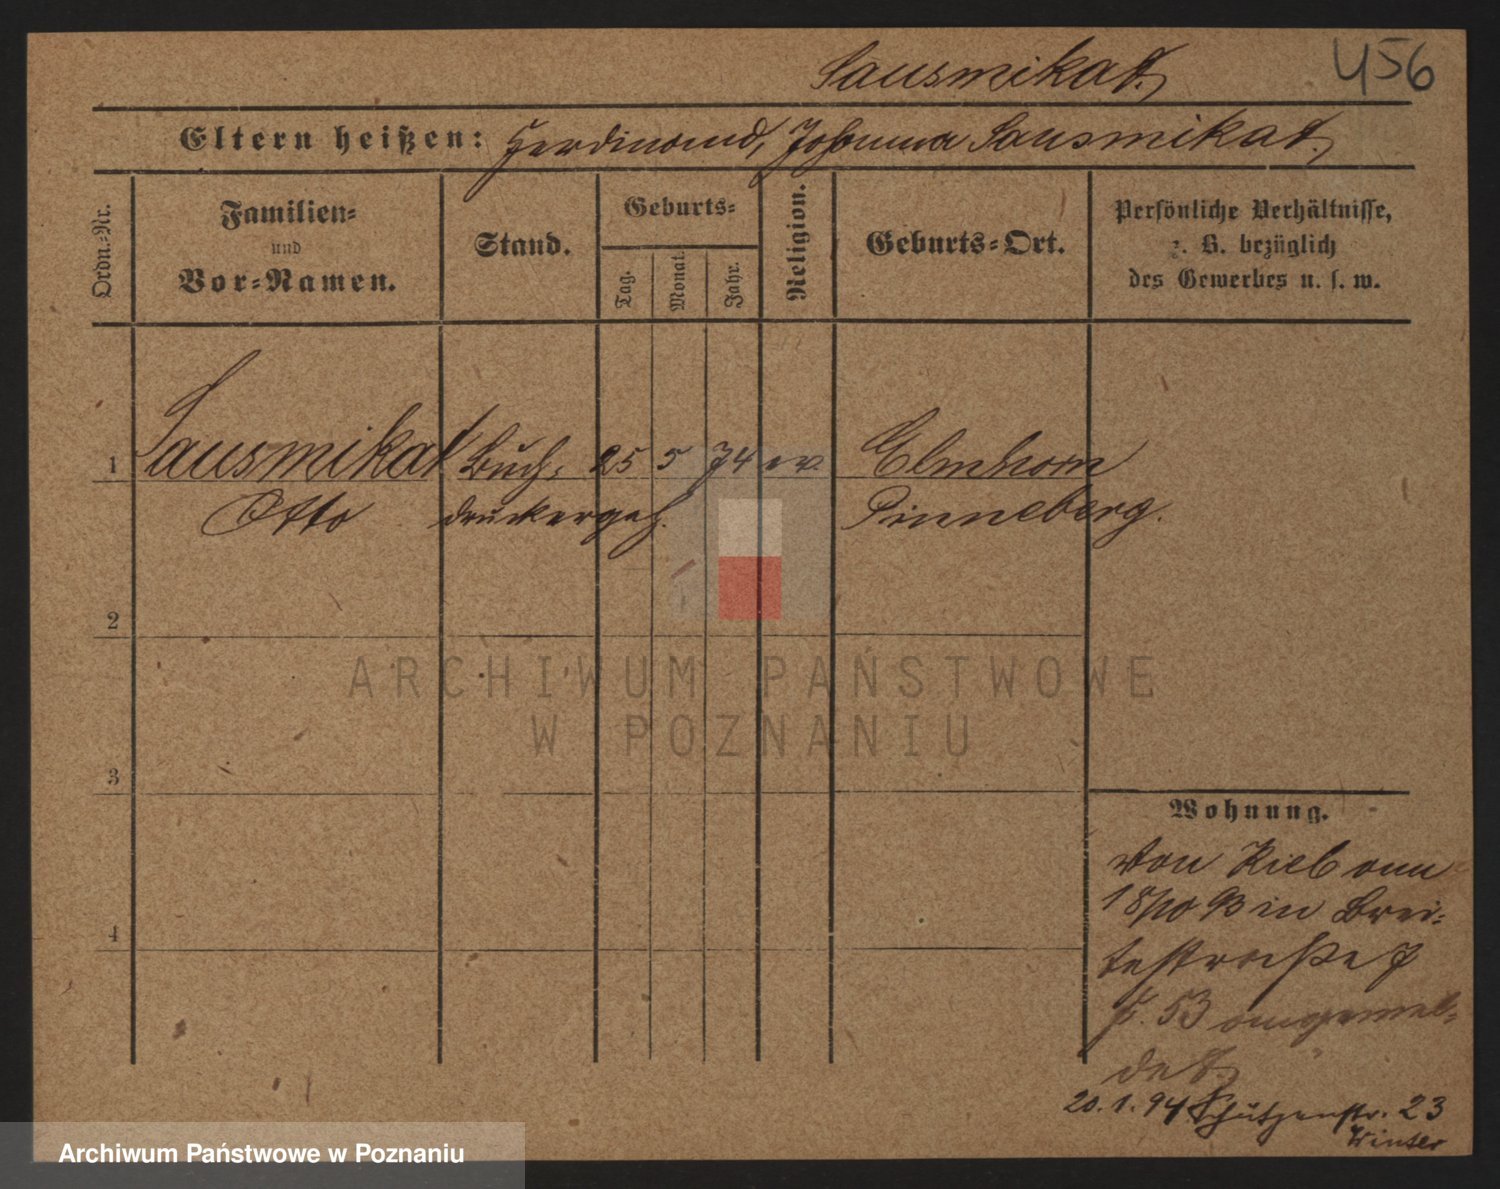 Sausmikat.
456
Eltern heißen: Ferdinand, Johanna Sausmikat.
Ordn.-Nr.
Familien-
und
Vor-Namen.
Stand.
Geburts-
Tag.
Monat.
Jahr.
Religion.
Geburts-Ort.
Persönliche Verhältnisse,
z. B. bezüglich
des Gewerbes u. s. w.
1 Sausmikat Buch- 25 5 74 ev. Elmhorn
Otto druckergeh. Pinneberg.
2
3
4
ARCHIWUM PAŃSTWOWE
W POZNANIU
Wohnung.
Von Kiel am
18/10 93 in Brei-
testraße 7
b. 53 angemel-
det.
20.1.94 Schützenstr. 23
Winter
Archiwum Państwowe w Poznaniu